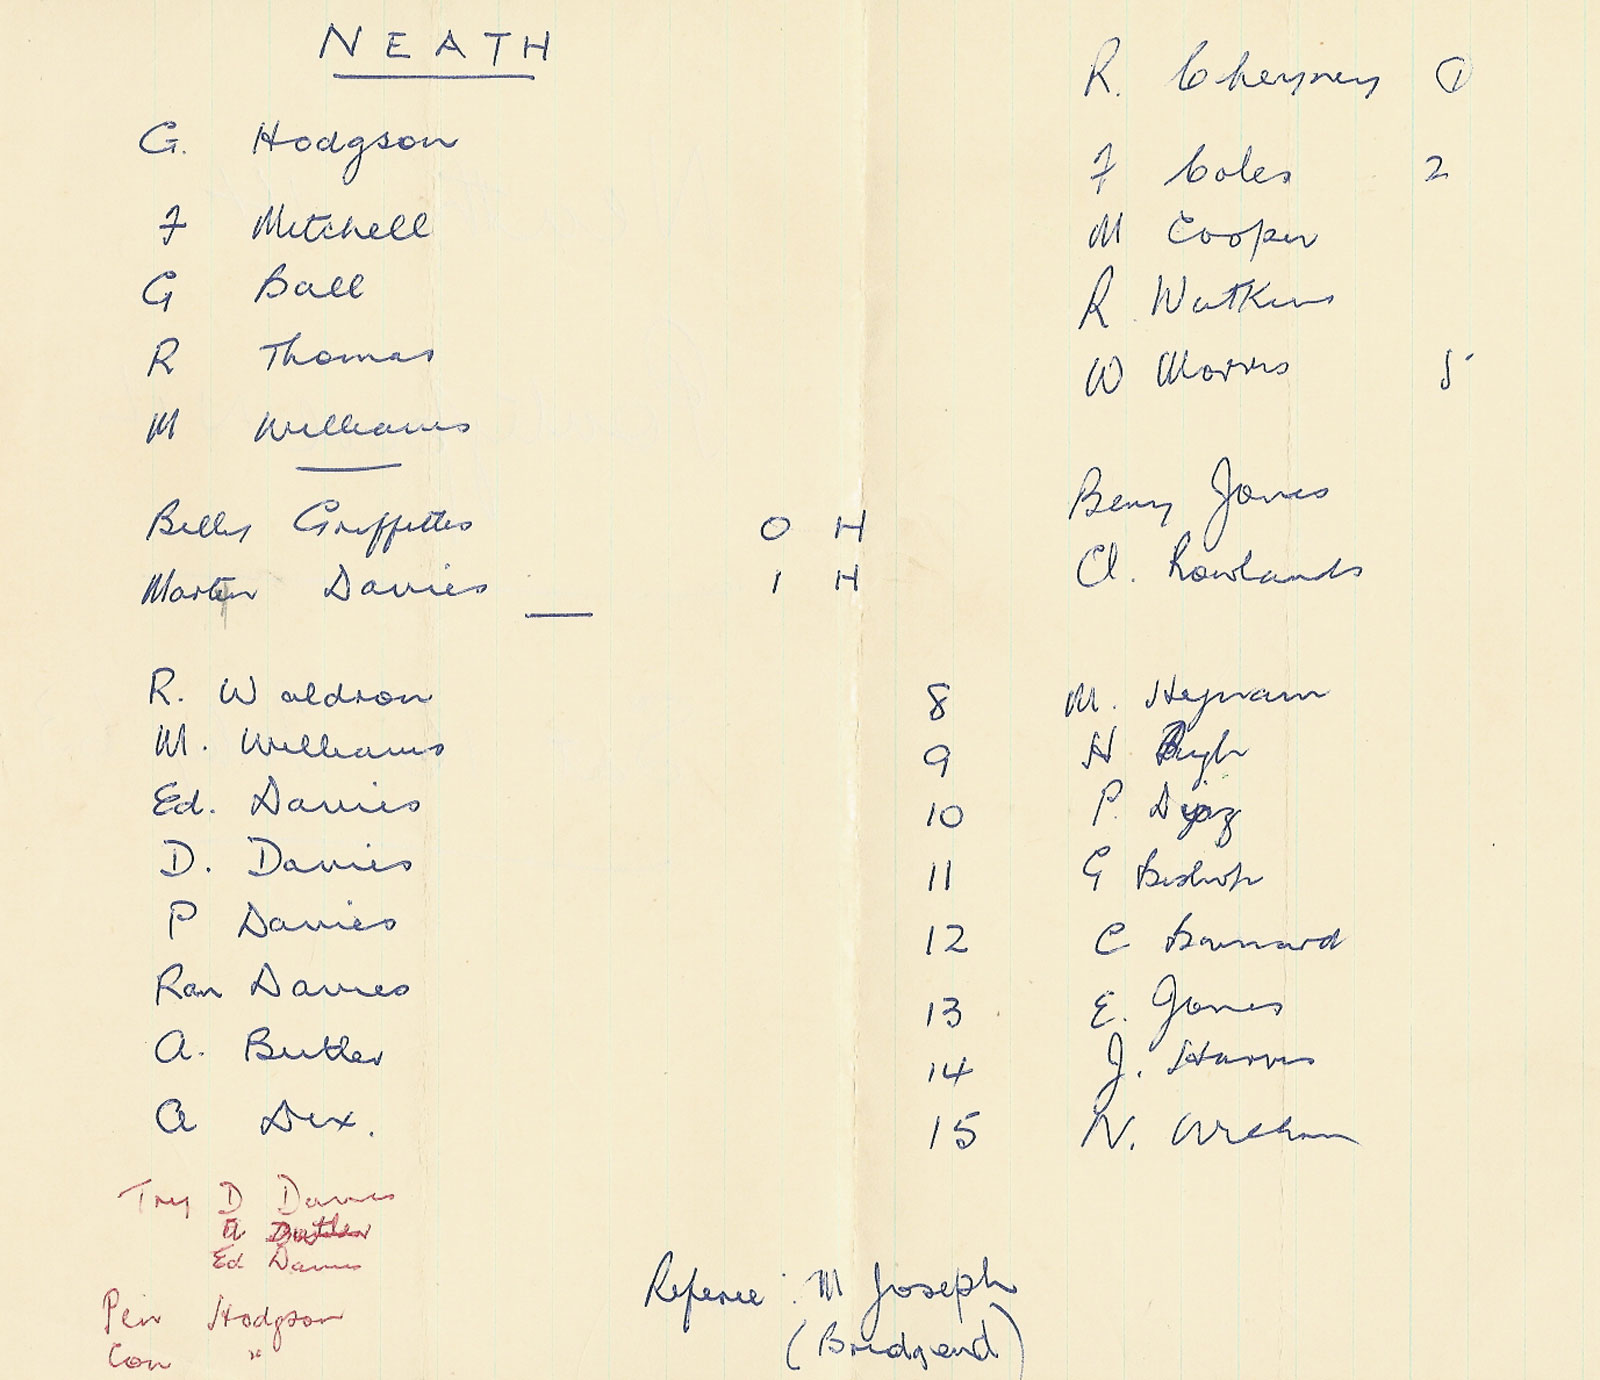 NEATH
R. Cheyney 1
G. Hodgson
F Coles 2
F Mitchell
M Cooper
G Ball
R Watkins
R Thomas
W Morris 5
M Williams
Benny Jones
Billy Griffiths 0 H
Cl. Rowlands
Martin Davies 1 H
R. Waldron 8 M. Heynam
M. Williams 9 H
Ed. Davies 10 P.
D. Davies 11 G Bishop
P Davies 12 C Barnard
Ron Davies 13 E. Jones
A. Butler 14 J. Harris
A Dex. 15 N.
Try D Davies
A Butler
Ed Davies
Pen Hodgson
Con "
Referee: M Joseph
(Bridgend)